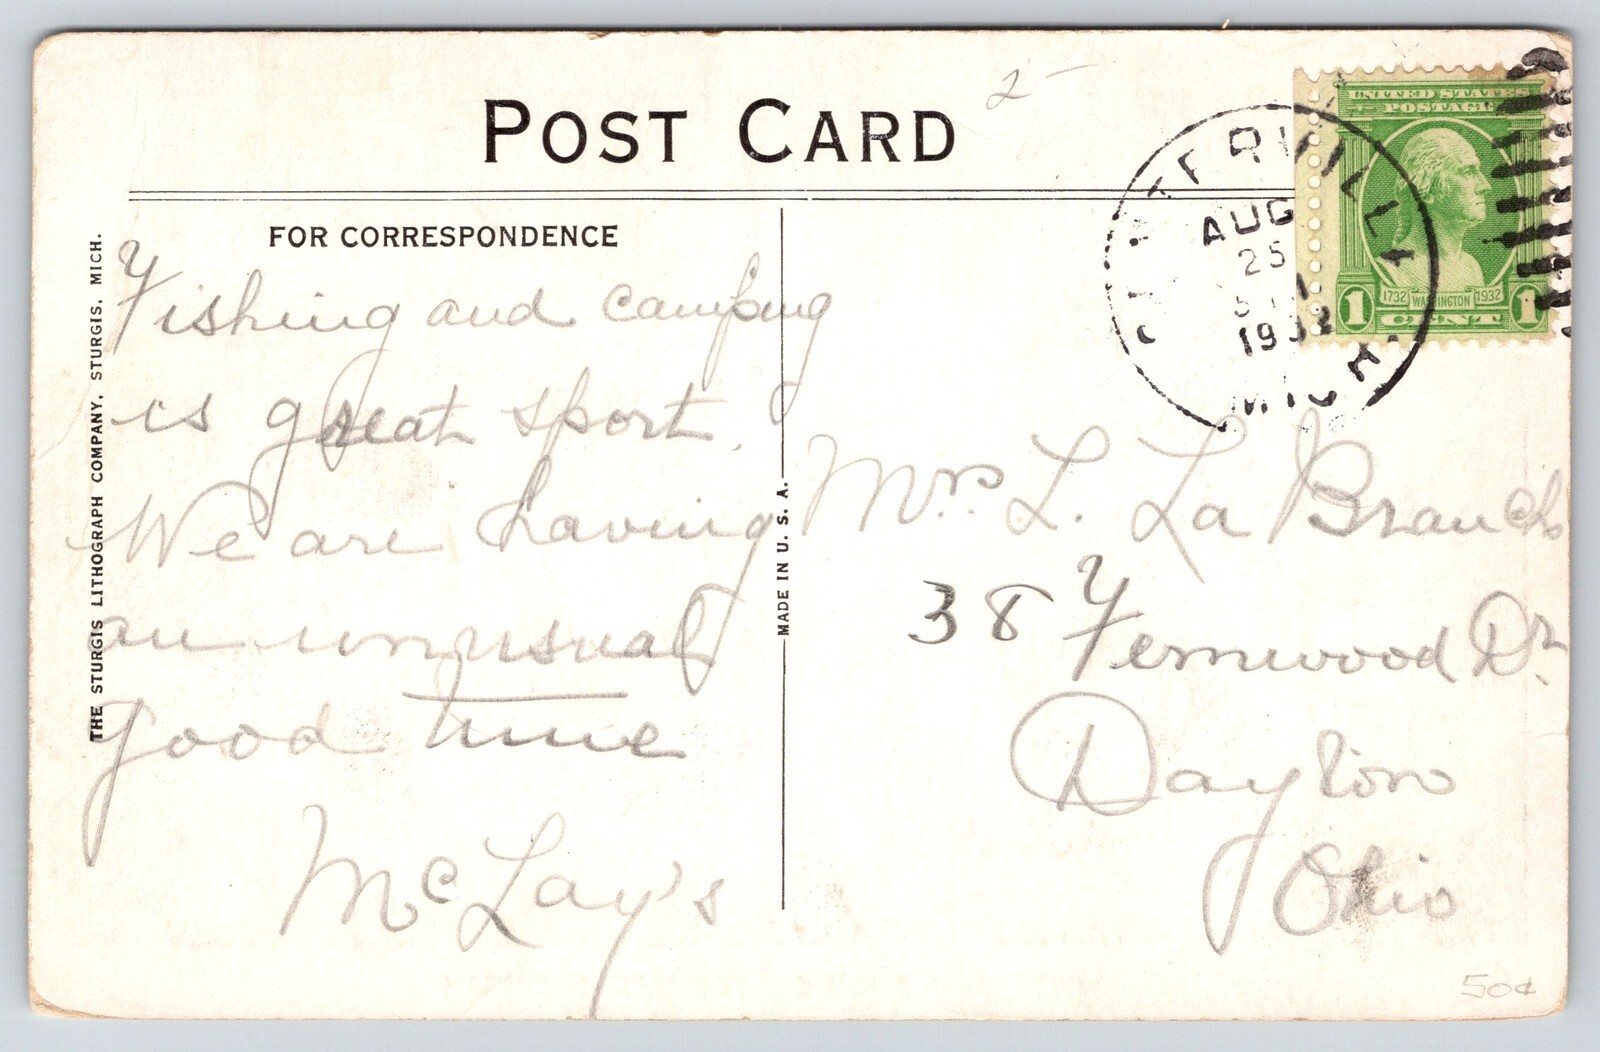 POST CARD
2-
FOR CORRESPONDENCE
THE STURGIS LITHOGRAPH COMPANY, STURGIS, MICH.
Fishing and camping
is great sport.
We are having
an unusual
good time
McLay's
MADE IN U. S. A.
AUG
25
1932
MICH.
UNITED STATES
POSTAGE
1732 WASHINGTON 1932
1 CENT 1
Mrs L. La Branch
38 Fernwood Dr.
Dayton
Ohio
50¢